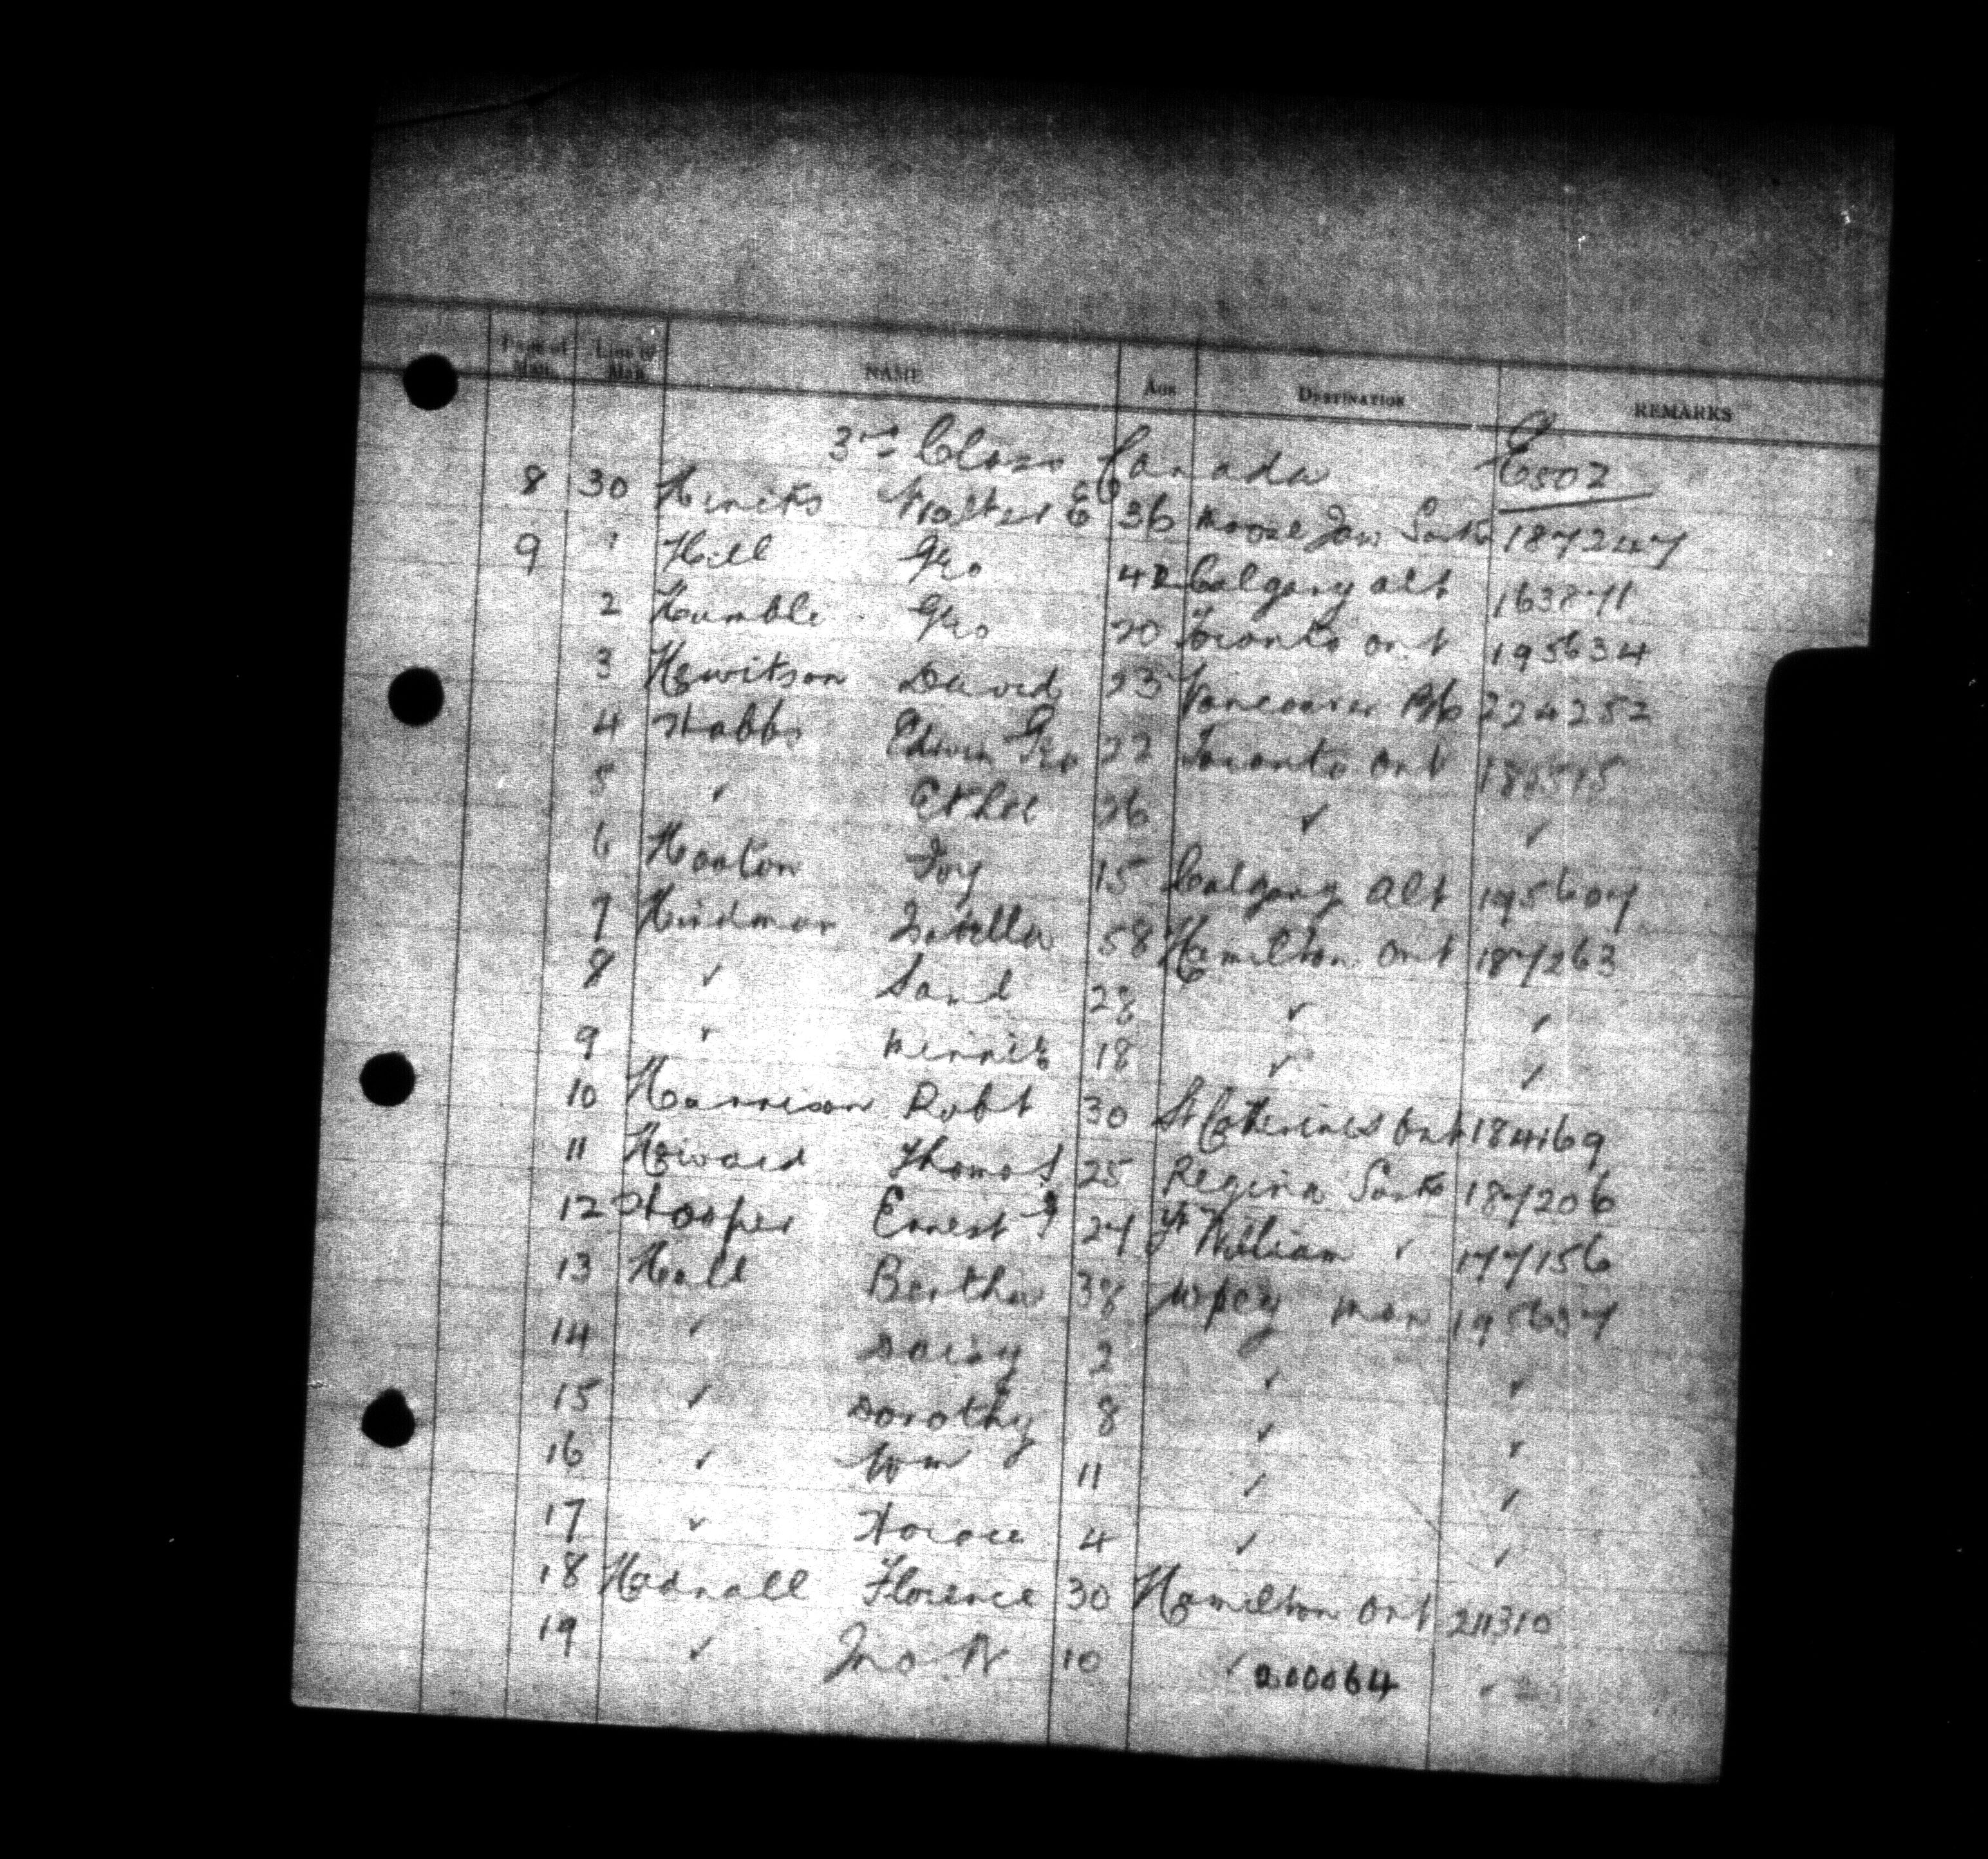 Page of Man. Line of Man. NAME AGE DESTINATION REMARKS
3rd Class Canada E502
8 30 Hincks Walter E 36 Moose Jaw Sask 187247
9 1 Hill Geo 42 Calgary alt 163871
2 Humble Geo 20 Toronto ont 195634
3 Hewitson David 23 Vancouver BC 224252
4 Hobbs Edwin Geo 22 Toronto Ont
5 ✓ Ethel 26 ✓ ✓
6 Hooton Ivy 15 Calgary alt 195607
7 Hindmar Isabella 58 Hamilton Ont 187263
8 ✓ Sarah 28 ✓ ✓
9 ✓ Minnie 18 ✓ ✓
10 Harrison Robt 30 St Catherines Ont 184169
11 Howard Thomas 25 Regina Sask 187206
12 Hooper Ernest J 27 Ft William ✓ 177156
13 Hall Bertha 38 Wpeg Man 195637
14 ✓ Daisy 2 ✓ ✓
15 ✓ Dorothy 8 ✓ ✓
16 ✓ Wm 11 ✓ ✓
17 ✓ Horace 4 ✓ ✓
18 Hadnall Florence 30 Hamilton Ont 211310
19 ✓ Jno W 10 ✓ 200064 ✓